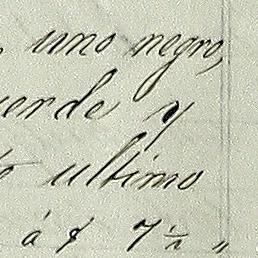 , uno negro,
uerde y
to ultimo
á $ 7 ½ "